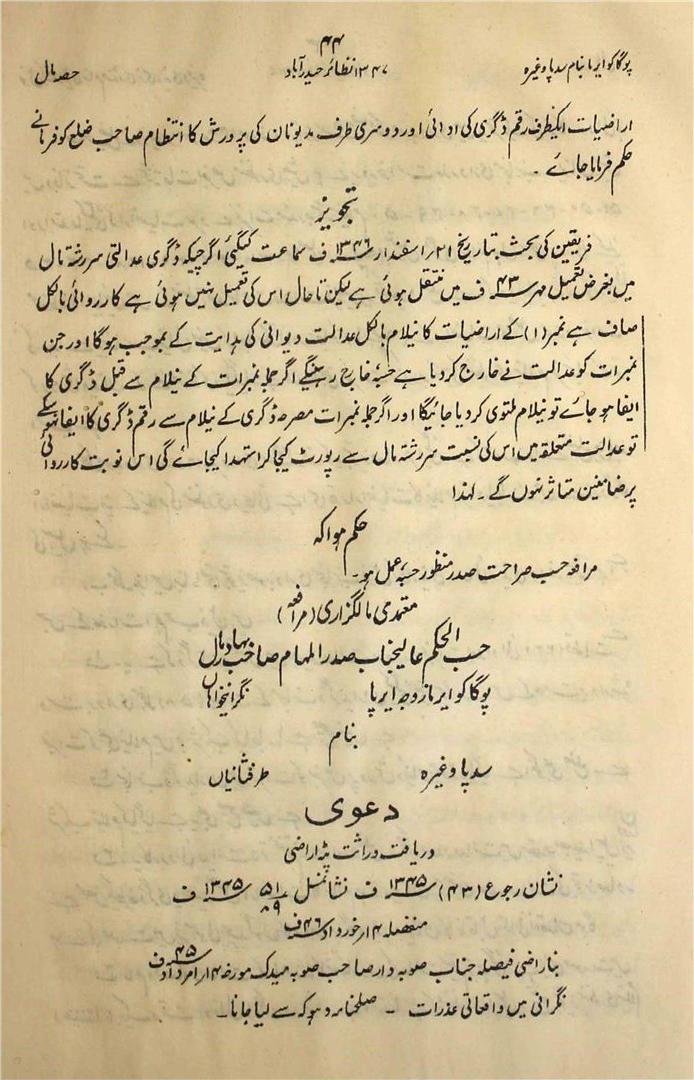 ۴۴
پوگاکو ایرما بنام سدپا وغیرہ ۱۳۴۷ نظائر حیدرآباد حصہ مال
اراضیات ایکطرف رقم ڈگری کی ادائی اور دوسری طرف مدیونان کی پرورش کا انتظام صاحب ضلع کو فرمانے
حکم فرمایا جائے ۔
تجویز
فریقین کی بحث بتاریخ ۲۱؍ اسفندار ۱۳۴۶ ف سماعت کیگئی اگرچیکہ ڈگری عدالتی سررشتہ مال
میں بغرض تعمیل مہر ۴۳ ف میں منتقل ہوئی ہے لیکن تاحال اس کی تعمیل نہیں ہوئی ہے کارروائی بالکل
صاف ہے نمبر (۱) کے اراضیات کا نیلام بالکل عدالت دیوانی کی ہدایت کے بموجب ہوگا اور جن
نمبرات کو عدالت نے خارج کردیا ہے حسبہ خارج رہینگے اگر جملہ نمبرات کے نیلام سے قبل ڈگری کا
ایفا ہوجائے تو نیلام ملتوی کردیا جائیگا اور اگر جملہ نمبرات مصرحہ ڈگری کے نیلام سے رقم ڈگری کا ایفا نہوسکے
تو عدالت متعلقہ میں اس کی نسبت سررشتہ مال سے رپورٹ کیجاکر استہدا کیجائے گی اس نوبت کارروائی
پر ضامنین متاثر نہوں گے ۔ لہذا
حکم ہوا کہ
مرافعہ حسب صراحت صدر منظور حسبہ عمل ہو ۔
معتمدی مالگزاری (مرافعہ)
حسب الحکم عالیجناب صدر المہام صاحب بہادر مال
پوگاکو ایرما زوجہ ایرپا نگرانیخواہاں
بنام
سدپا وغیرہ طرفثانیاں
دعویٰ
دریافت وراثت پٹہ اراضی
نشان رجوع (۴۳) ۱۳۴۵ ف نشانمثل ۵۱/۸۹ ۱۳۴۵ ف
منفصلہ ۱۴؍ خورداد ۴۶ ف
بناراضی فیصلہ جناب صوبہ دار صاحب صوبہ میدک مورخہ ۱۴؍ امرداد ۴۵ ف
نگرانی میں واقعاتی عذرات ۔ صلحنامہ دہوکہ سے لیا جانا ۔